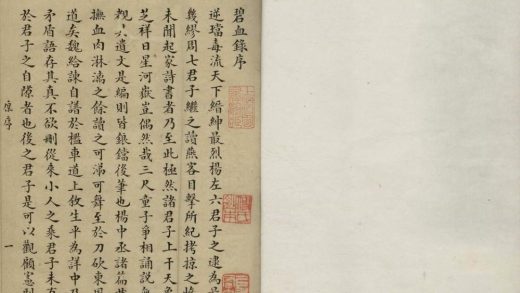 碧血錄序
逆璫毒流天下縉紳最烈楊左六君子之逮為
幾繆周七君子繼之讀燕客目擊所紀拷掠之
未聞起家詩書者乃至此極然諸君子上干天
芝祥日星河嶽豈偶然哉三尺童子爭相誦說
觀六遺文是編則皆銀鐺後筆也楊中丞諸篇
撫血肉淋漓之餘讀之可涕可舞至於刀砍東
道矣魏給諫自譜於檻車道上敘生平為詳中
矛盾語存其真不欲刪從來小人之乘君子未
於君子之自隙者也後之君子是可以觀願憲
原序
一